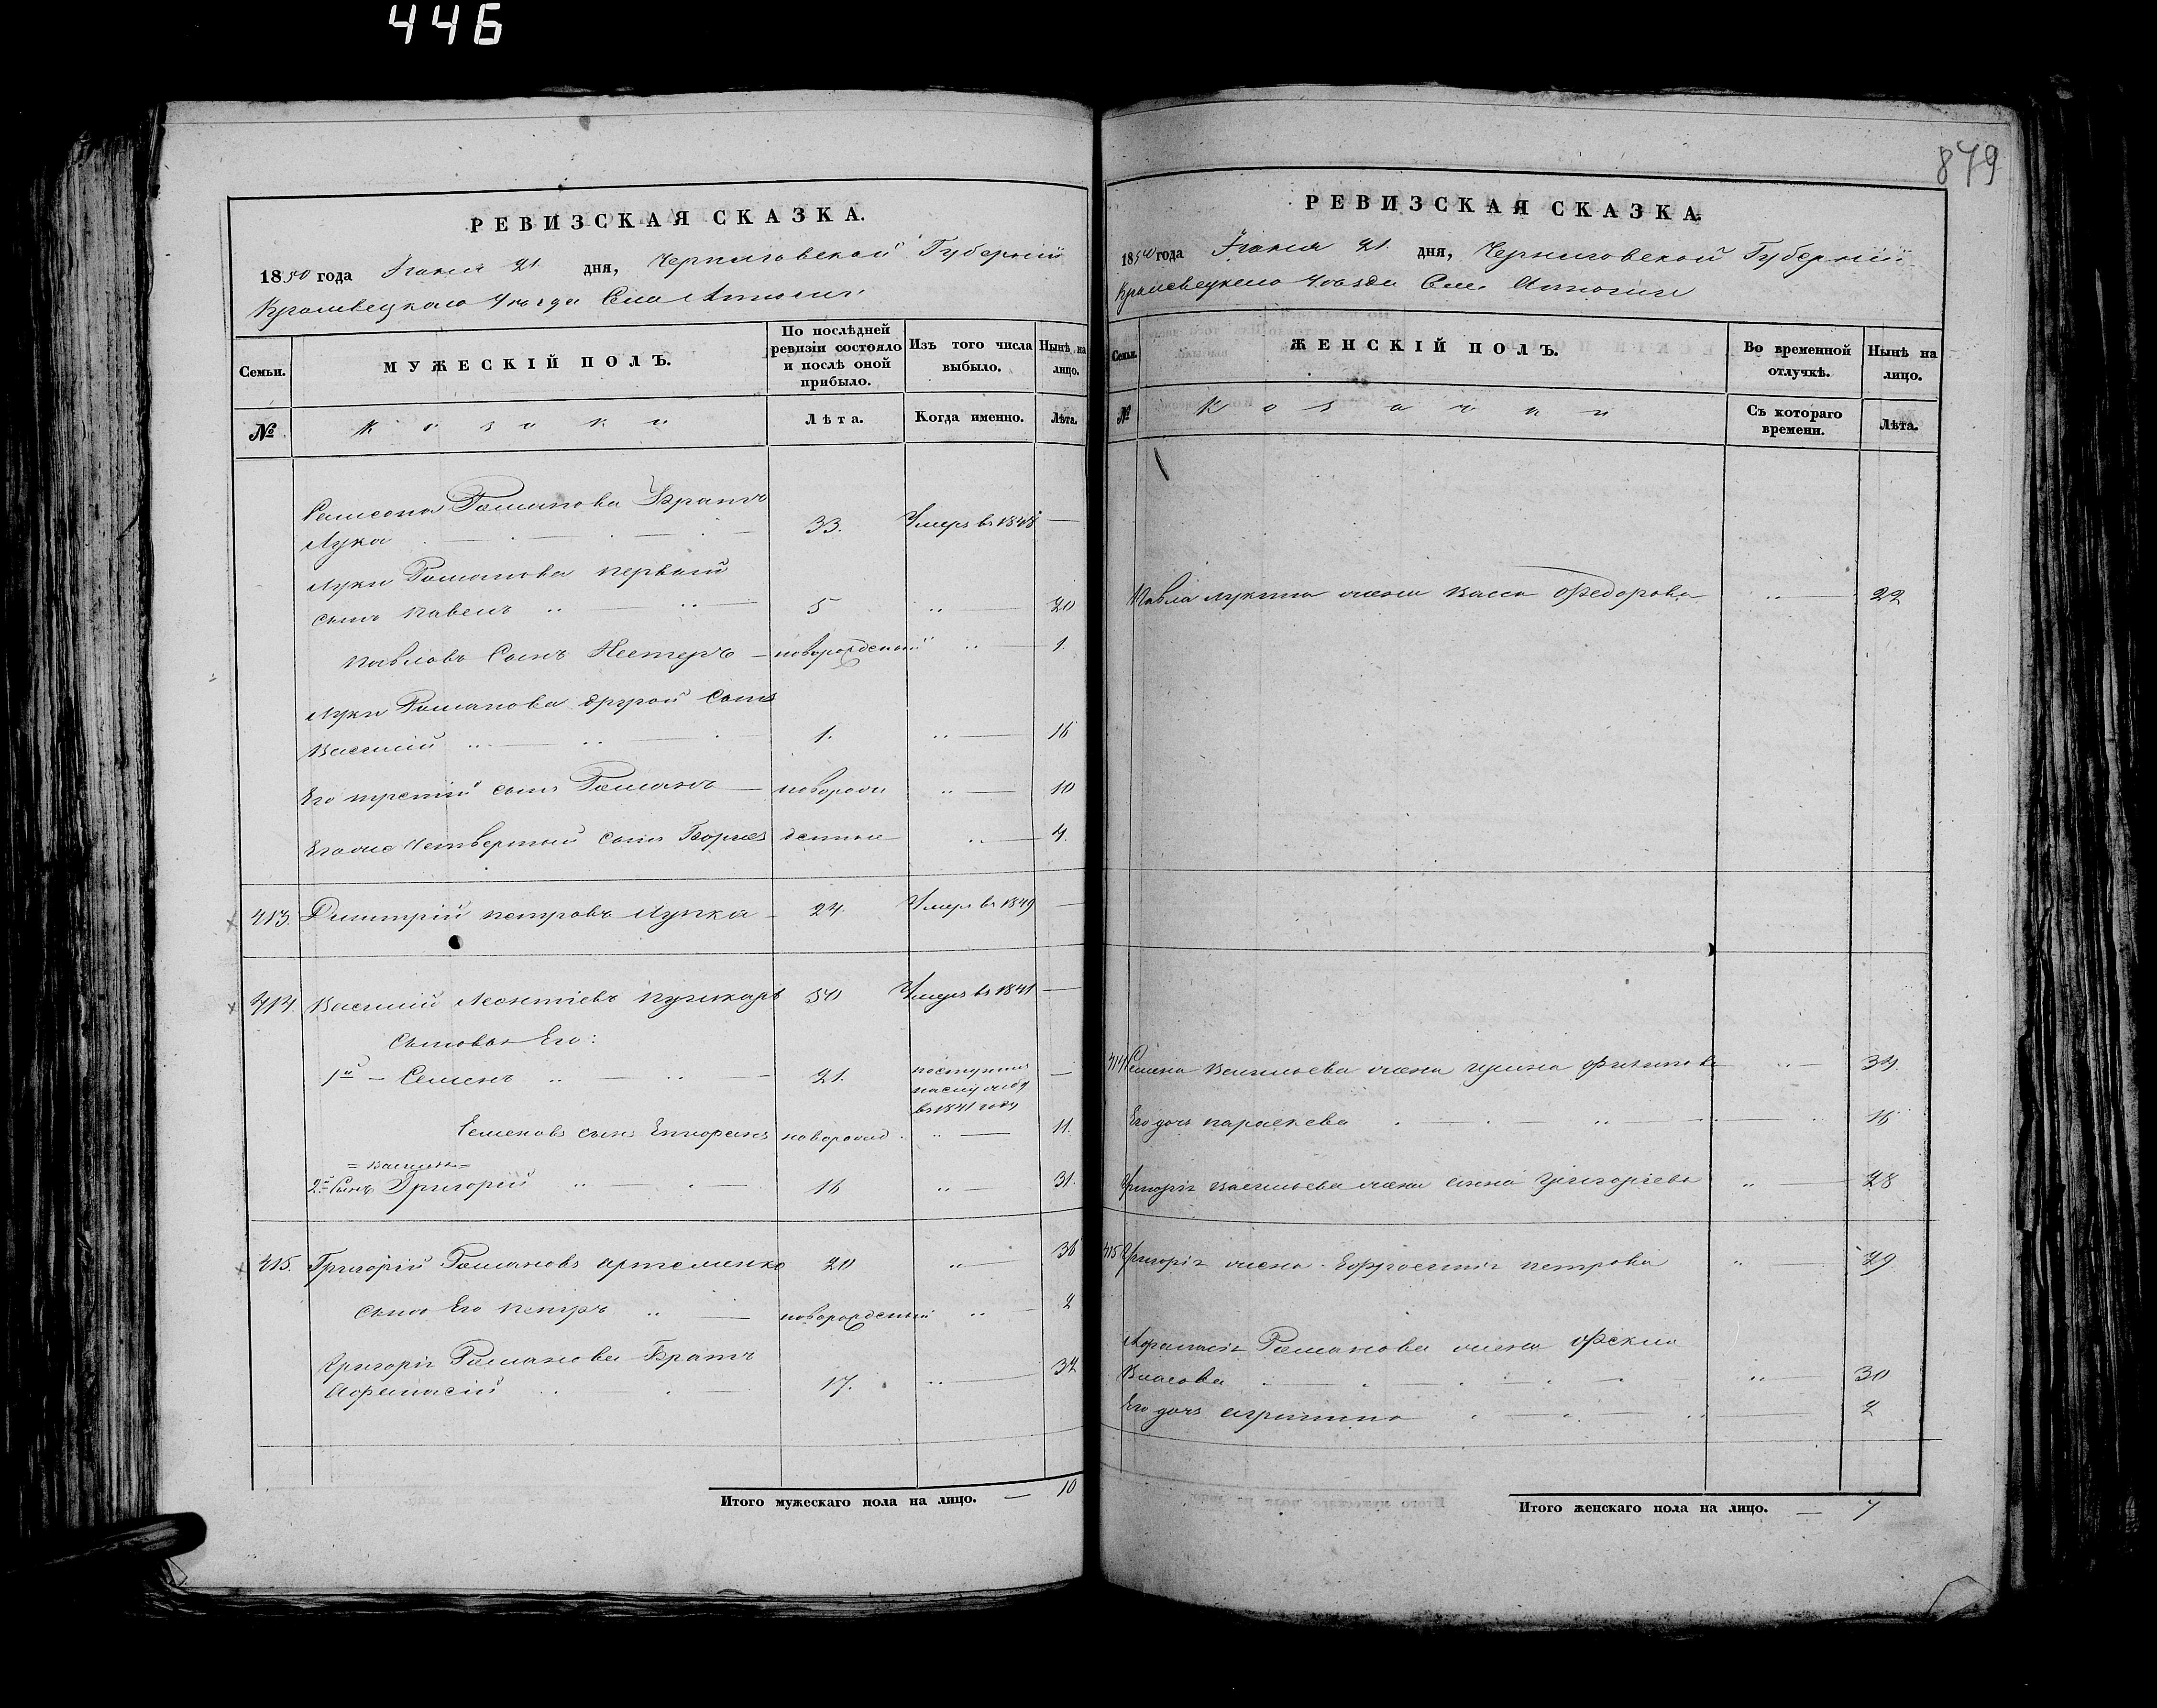 446
879
РЕВИЗСКАЯ СКАЗКА.
1850 года Іюня 21 дня, Черниговской Губерніи
Кролевецкаго Уѣзда Села
МУЖЕСКІЙ ПОЛЪ.
Семьи.
По послѣдней ревизіи состояло и послѣ оной прибыло.
Изъ того числа выбыло.
Нынѣ на лицо.
№
Козаки
Лѣта.
Когда именно.
Лѣта.
Самсона Романова Братъ
Лука 33. Умеръ въ 1848 —
Луки Романова первый
сынъ Павелъ 5 20
Павловъ Сынъ Нестеръ — новорожденный 1
Луки Романова другой Сынъ
Василій 1. 16
Его третій сынъ Романъ — новорож 10
Егоже Четвертый сынъ Георгій денные 4.
413. Димитрій Петровъ Лупка — 24. Умеръ въ 1849 —
414. Василій Леонтіевъ Пушкарь 50 Умеръ въ 1841 —
Сыновья Его:
1й — Семенъ 21. поступилъ —
на службу
въ 1841 году
Семеновъ сынъ новорожд. 11.
= Васильев =
2й Сынъ Григорій 16 31.
415. Григорій Романовъ Артеменко 20 36
Сынъ Его Петръ новорожденный 2
Григорія Романова Братъ
Афанасій 17. 32
Итого мужескаго пола на лицо. — 10
РЕВИЗСКАЯ СКАЗКА.
1850 года Іюня 21 дня, Черниговской Губерніи
Кролевецкаго Уѣзда Села
Семьи.
ЖЕНСКІЙ ПОЛЪ.
Во временной отлучкѣ.
Нынѣ на лицо.
№
Козачки
Съ котораго времени.
Лѣта.
Павла Лукина жена Васса Федорова 22
414 Семена Васильева жена Филипова 34
Его дочь Параскева 16
Григорія Васильева жена Анна Григоріева 28
415 Григорія жена Ефросинія Петрова 29
Афанасія Романова жена Фекла
Власова 30
Его дочь Агрипина 2
Итого женскаго пола на лицо. — 7